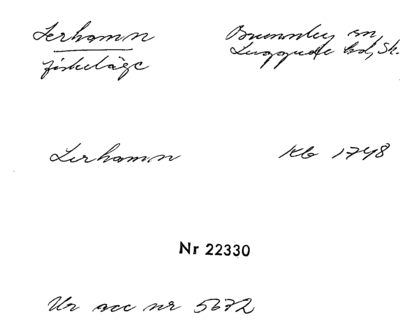 Lerhamn Brunnby sn,
fiskeläge Luggude hd, Sk.
Lerhamn Kb 1748
Nr 22330
Ur acc nr 5672